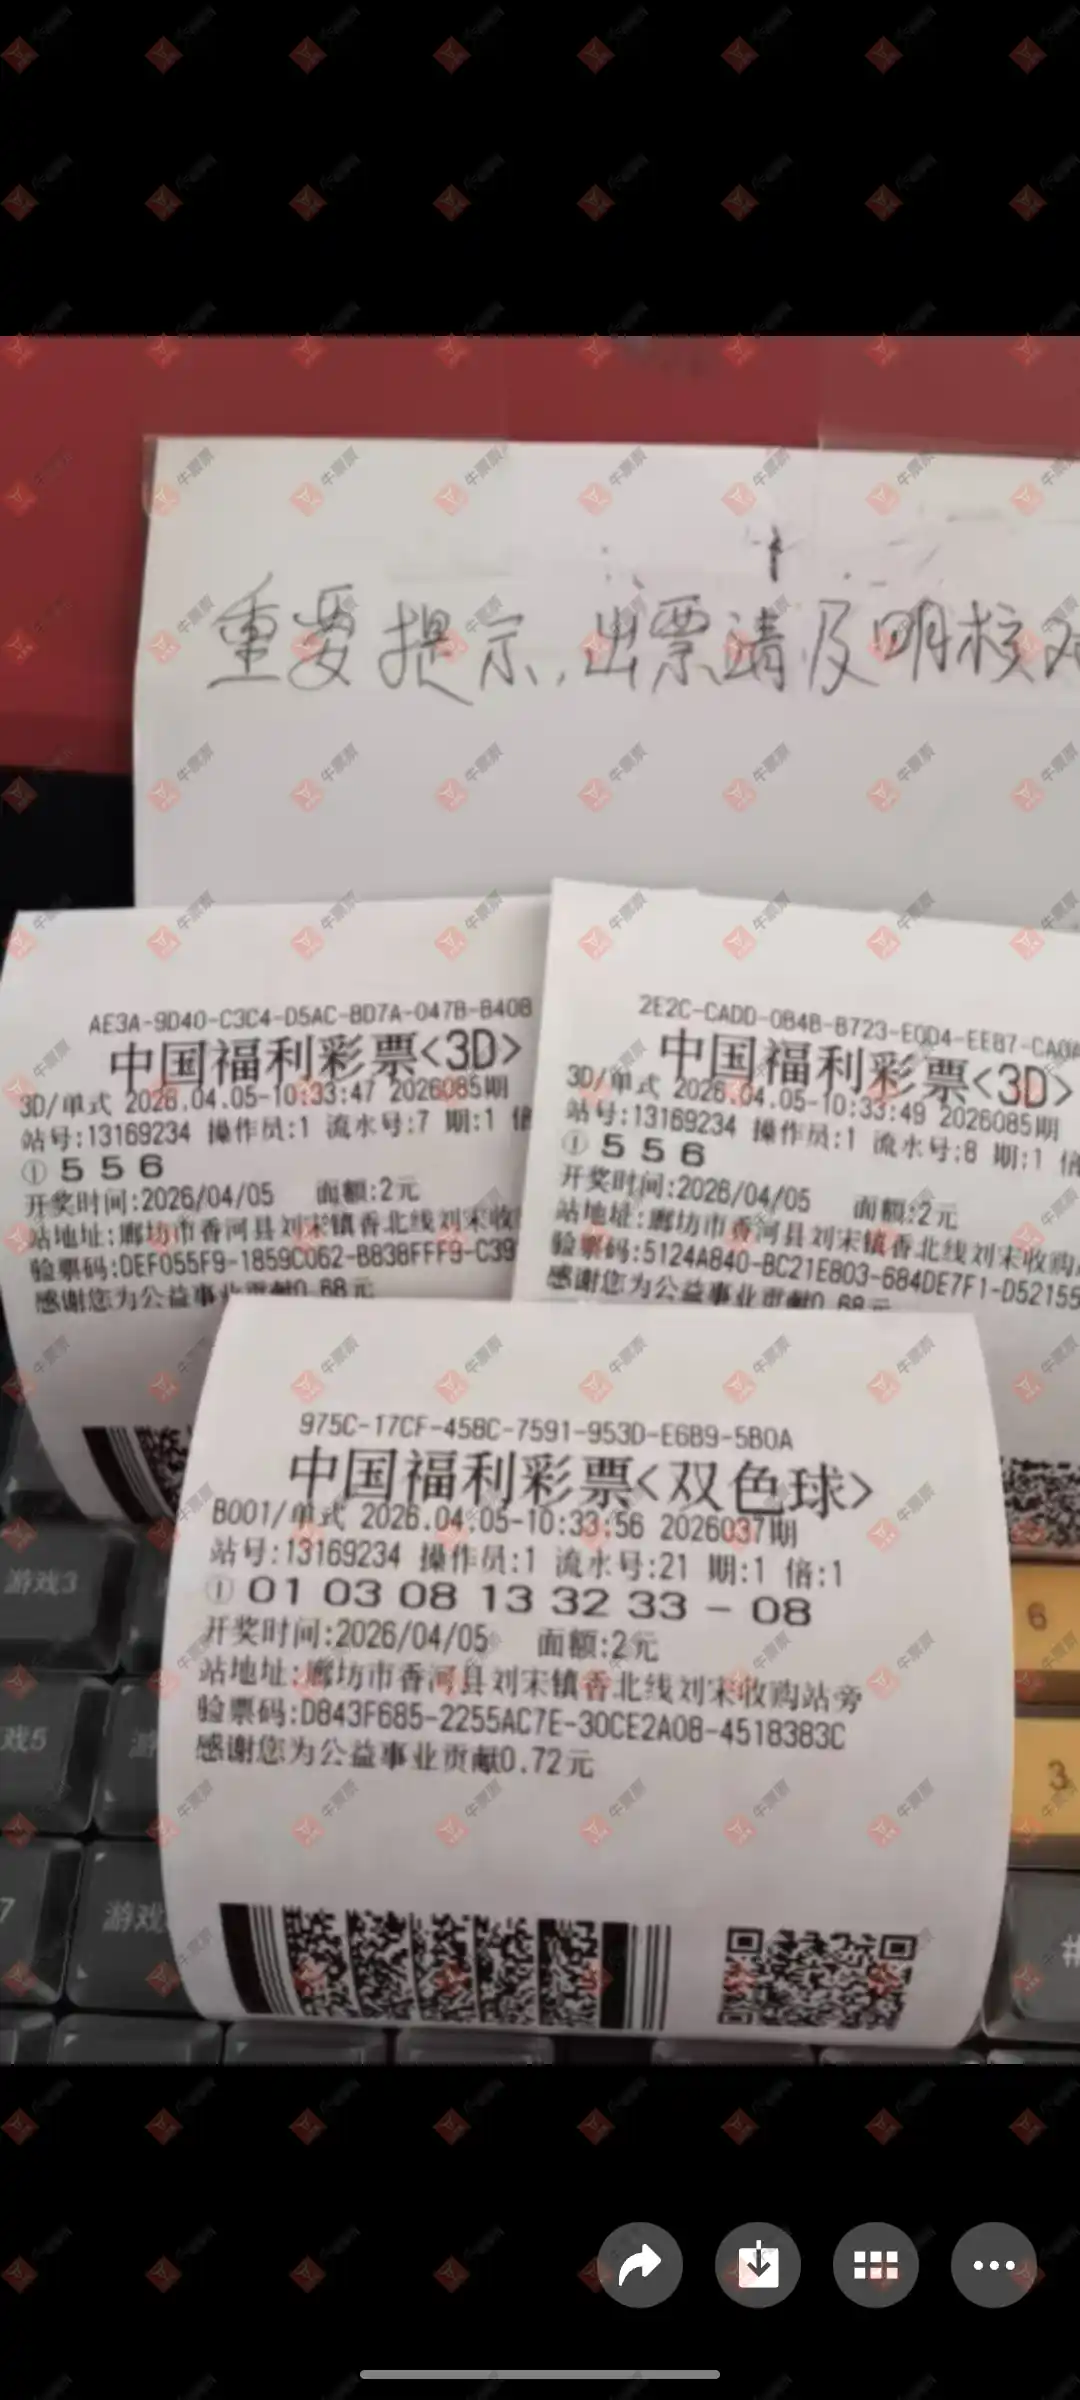 重要提示,出票请及明核对
AE3A-9D40-C3C4-D5AC-8D7A-047B-B40B
中国福利彩票<3D>
3D/单式 2026.04.05-10:33:47 2026085期
站号:13169234 操作员:1 流水号:7 期:1 倍
① 5 5 6
开奖时间:2026/04/05 面额:2元
站地址:廊坊市香河县刘宋镇香北线刘宋收
验票码:DEF055F9-1859C062-B838FFF9-C39
感谢您为公益事业贡献0.68元
2E2C-CADD-0B4B-B723-E0D4-EEB7-CA0A
中国福利彩票<3D>
3D/单式 2026.04.05-10:33:49 2026085期
站号:13169234 操作员:1 流水号:8 期:1 倍
① 5 5 6
开奖时间:2026/04/05 面额:2元
站地址:廊坊市香河县刘宋镇香北线刘宋收购
验票码:5124A840-BC21E803-684DE7F1-D52155
感谢您为公益事业贡献0.68元
975C-17CF-458C-7591-953D-E6B9-5B0A
中国福利彩票<双色球>
B001/单式 2026.04.05-10:33:56 2026037期
站号:13169234 操作员:1 流水号:21 期:1 倍:1
① 01 03 08 13 32 33 - 08
开奖时间:2026/04/05 面额:2元
站地址:廊坊市香河县刘宋镇香北线刘宋收购站旁
验票码:D843F685-2255AC7E-30CE2A08-4518383C
感谢您为公益事业贡献0.72元
游戏3
6
戏5
游
3
7
游戏
#
牛票票